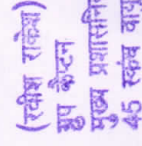 (रवीश राकेश)
ग्रुप कैप्टन
मुख्य प्रशासनि
45 स्कंध वायु